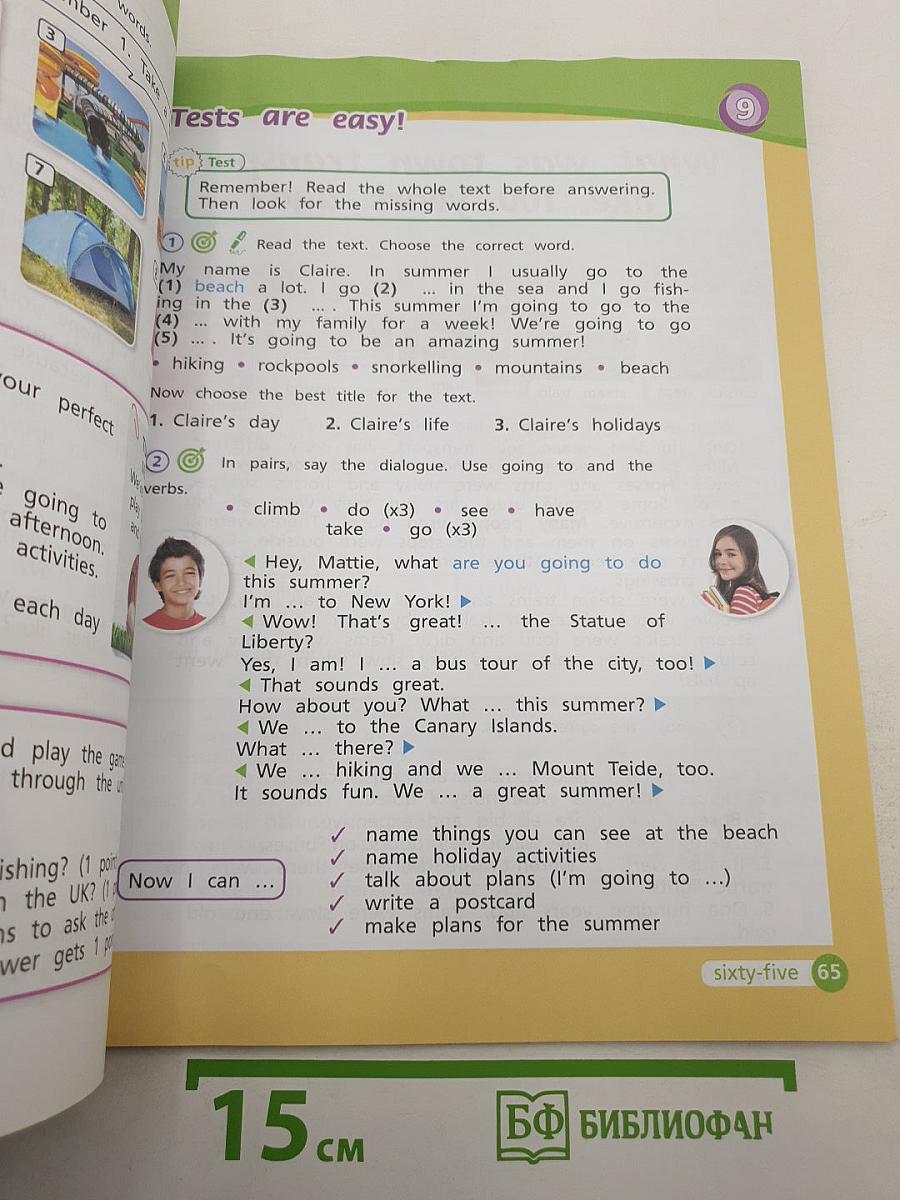 words.
mber 1. Take a
3
7
your perfect
e going to
afternoon.
activities.
each day
d play the game
through the
ishing? (1 poin
n the UK? (1 p
ns to ask the
wer gets 1 po
Tests are easy!
9
tip Test
Remember! Read the whole text before answering.
Then look for the missing words.
1 Read the text. Choose the correct word.
My name is Claire. In summer I usually go to the
(1) beach a lot. I go (2) ... in the sea and I go fish-
ing in the (3) ... . This summer I'm going to go to the
(4) ... with my family for a week! We're going to go
(5) ... . It's going to be an amazing summer!
• hiking • rockpools • snorkelling • mountains • beach
Now choose the best title for the text.
1. Claire's day 2. Claire's life 3. Claire's holidays
2 In pairs, say the dialogue. Use going to and the
verbs.
• climb • do (x3) • see • have
take • go (x3)
◀ Hey, Mattie, what are you going to do
this summer?
I'm ... to New York! ▶
◀ Wow! That's great! ... the Statue of
Liberty?
Yes, I am! I ... a bus tour of the city, too! ▶
◀ That sounds great.
How about you? What ... this summer? ▶
◀ We ... to the Canary Islands.
What ... there? ▶
◀ We ... hiking and we ... Mount Teide, too.
It sounds fun. We ... a great summer! ▶
Now I can ...
✓ name things you can see at the beach
✓ name holiday activities
✓ talk about plans (I'm going to ...)
✓ write a postcard
✓ make plans for the summer
sixty-five 65
15 см
БФ БИБЛИОФАН